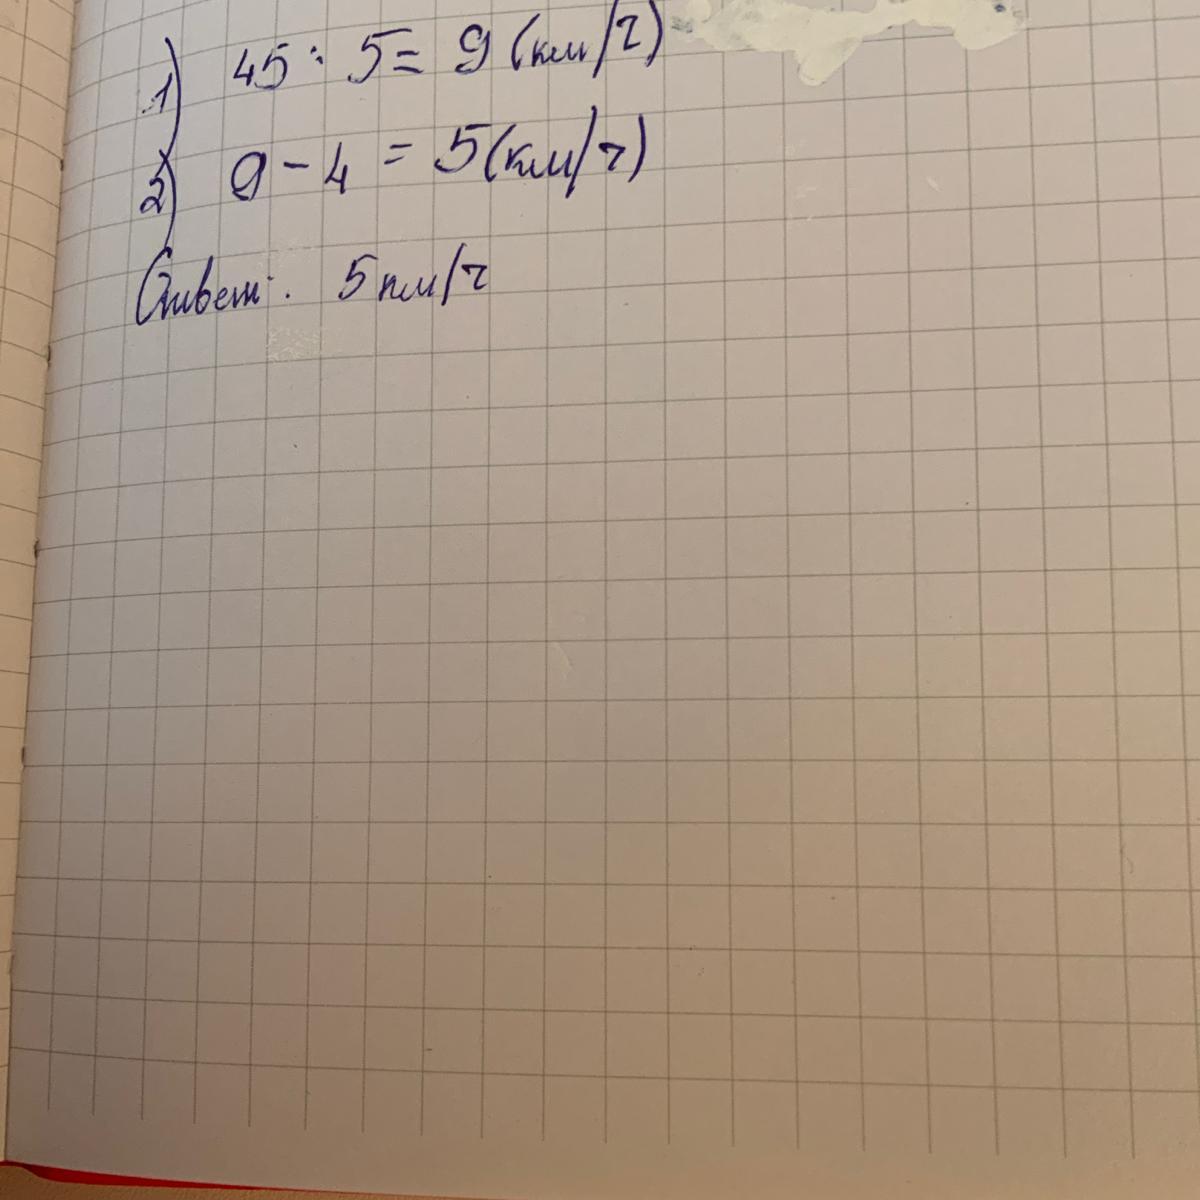 1) 45 : 5 = 9 (км/ч)
2) 9 - 4 = 5 (км/ч)
Ответ: 5 км/ч